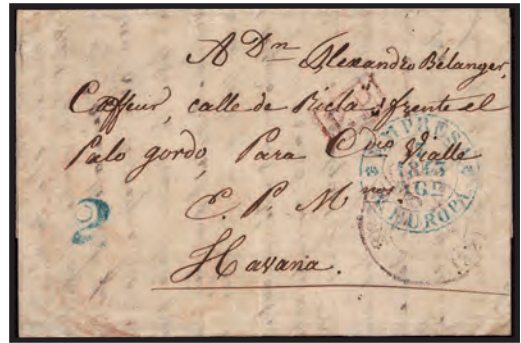 A Dn Alexandro Bélanger,
Coiffeur, calle de Ricla, frente el
Palo gordo, Para Vialle
E. P. M.
Havana.
EMPRESA
1843
AGO
EUROPA
2